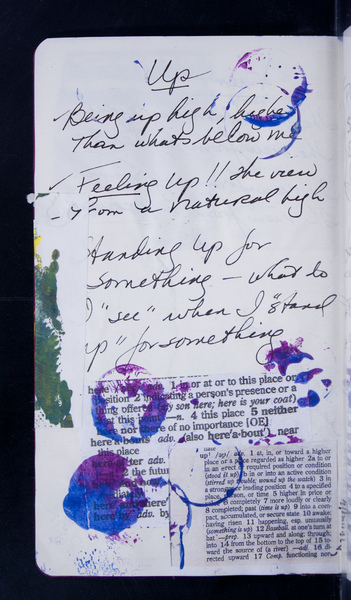 Up
Being up high, higher
Than whats below me
Feeling Up!! The view
- From a natural high
tanding Up for
Something - what do
I "see" when I "stand
up" for something
here adv. 1 in or at or to this place or
position 2 indicating a person's presence or a
thing offered (my son here; here is your coat)
3 at this point —n. 4 this place 5 neither
here nor there of no importance [OE]
here'a·bouts adv. (also here'a·bout'), near
this place
after adv.
2 the futur
adv. by
up¹ /up/ adv. 1 at, in, or toward a higher
place or a place regarded as higher 2a to or
in an erect or required position or condition
(stood it up) b in or into an active condition
(stirred up trouble; wound up the watch) 3 in
a stronger or leading position 4 to a specified
place, person, or time 5 higher in price or
7 more loudly or clearly
8 completed; past (time is up) 9 into a com-
pact, accumulated, or secure state 10 awake
having risen 11 happening, esp. unusually
(something is up) 12 Baseball. at one's turn at
bat —prep. 13 upward and along; through;
into 14 from the bottom to the top of 15 to-
ward the source of (a river) —adj. 16 di-
rected upward 17 Comp. functioning nor-